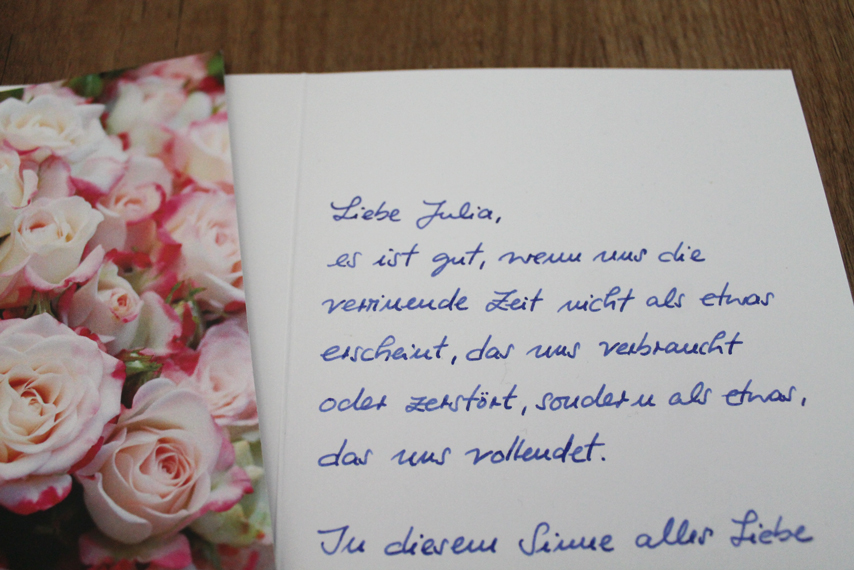 Liebe Julia,
es ist gut, wenn uns die
verrinnende Zeit nicht als etwas
erscheint, das uns verbraucht
oder zerstört, sondern als etwas,
das uns vollendet.
In diesem Sinne alles Liebe